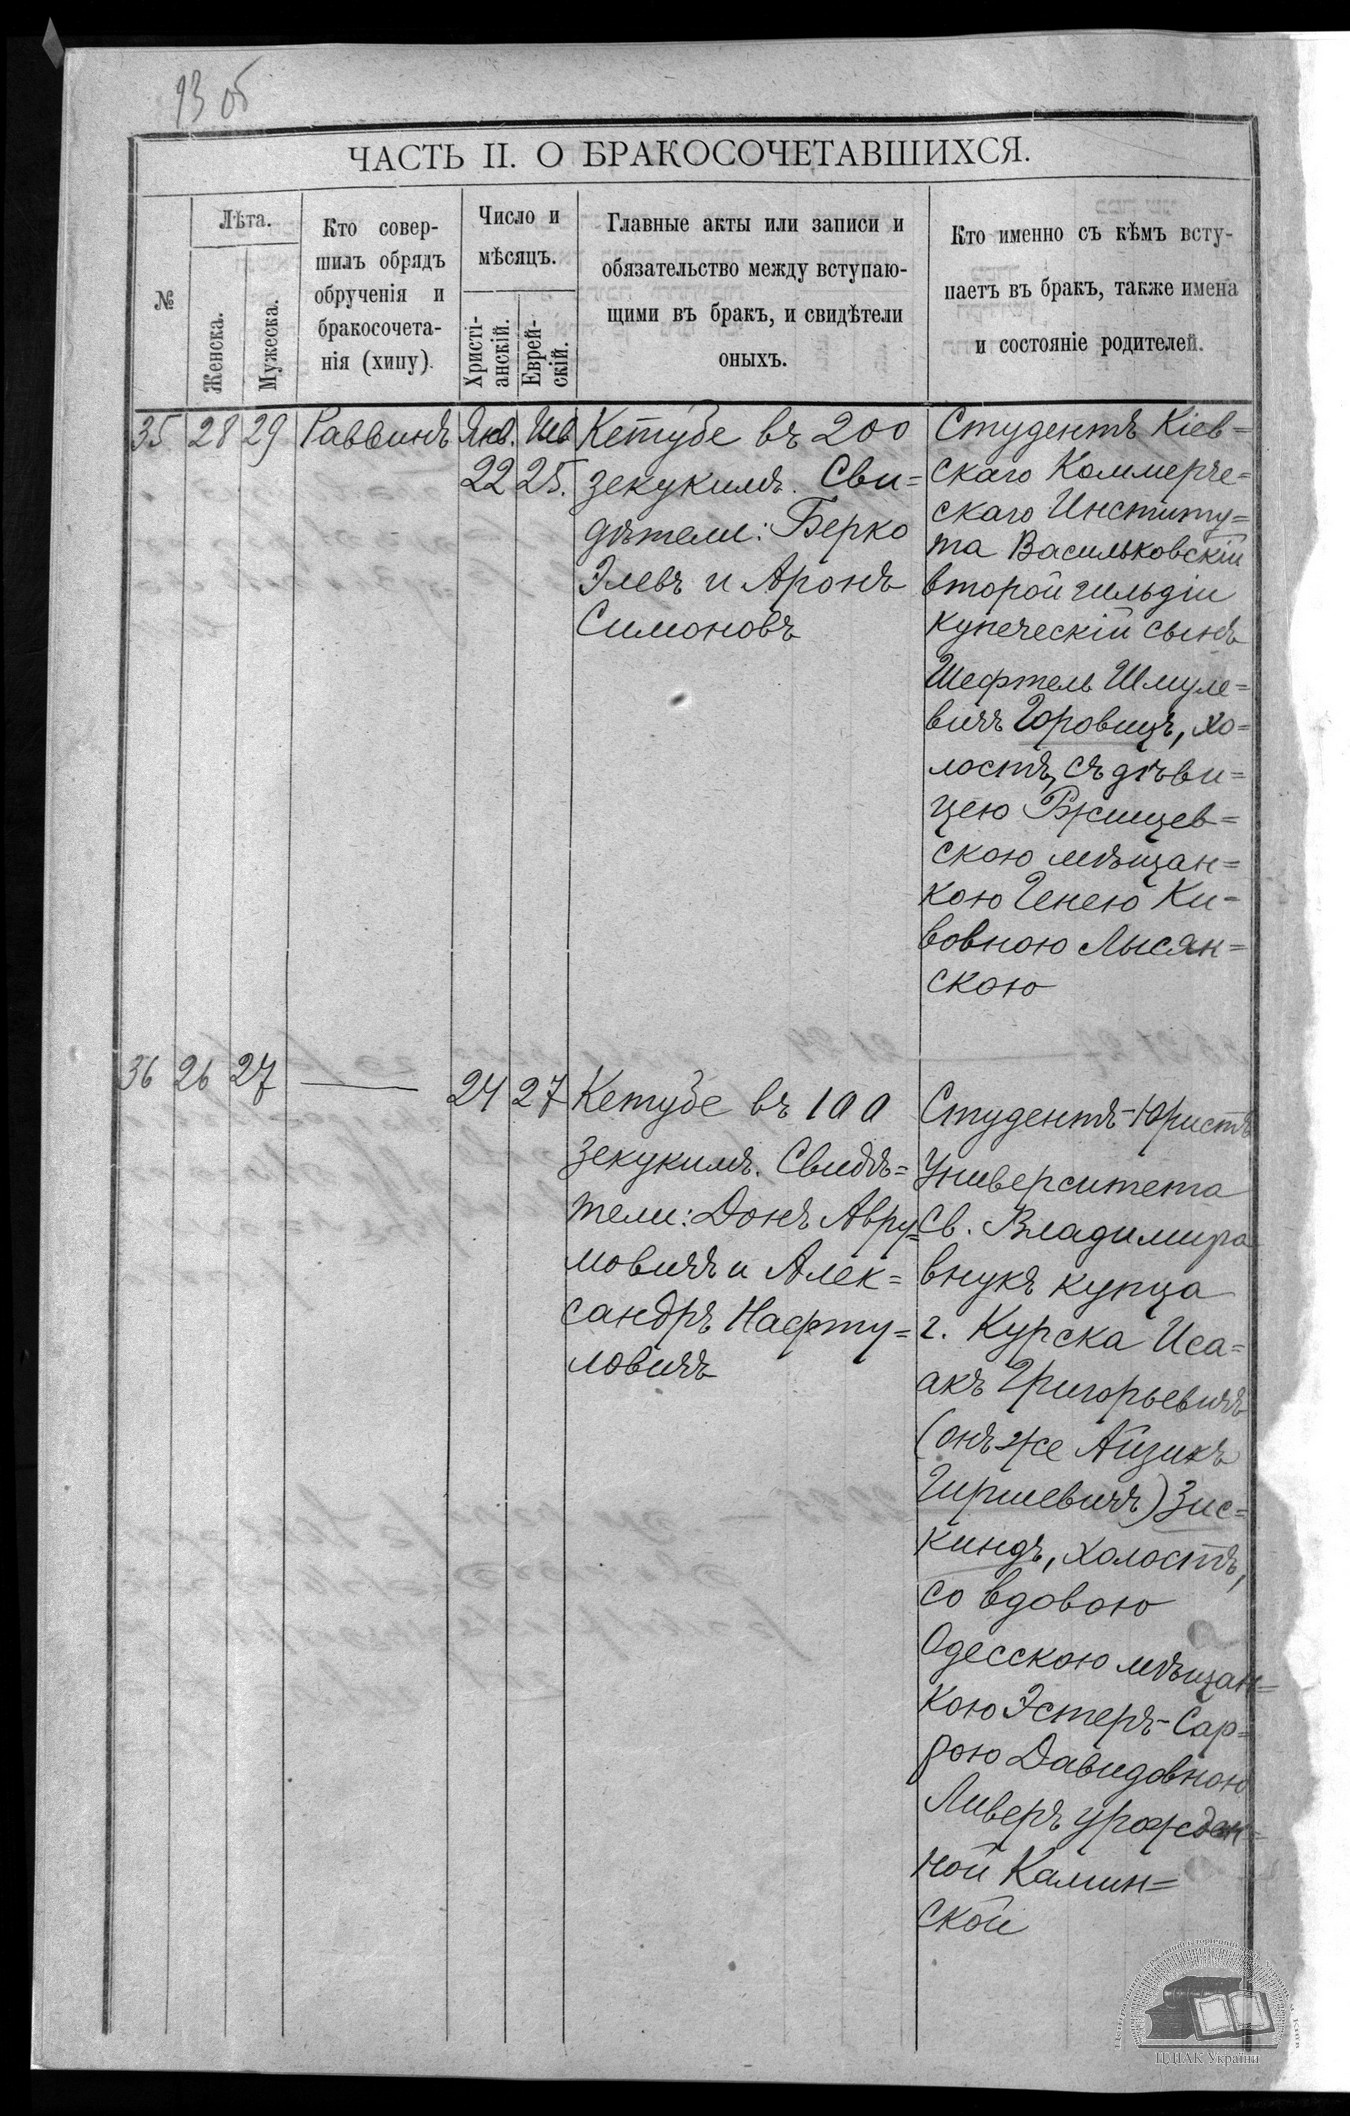 93 об
ЧАСТЬ II. О БРАКОСОЧЕТАВШИХСЯ.
№
Лѣта.
Женска.
Мужеска.
Кто совер-
шилъ обрядъ
обрученія и
бракосочета-
нія (хипу).
Число и
мѣсяцъ.
Христі-
анскій.
Еврей-
скій.
Главные акты или записи и
обязательство между вступаю-
щими въ бракъ, и свидѣтели
оныхъ.
Кто именно съ кѣмъ всту-
паетъ въ бракъ, также имена
и состояніе родителей.
35 28 29 Раввинъ Янв. Шв
22 25.
Кетубе въ 200
зекукимъ. Сви=
дѣтели: Берко
Элевъ и Аронъ
Симоновъ
Студентъ Кіев=
скаго Коммерче=
скаго Институ=
та Васильковскій
второй гильдіи
купеческій сынъ
Шефтель Шмуле=
вичъ Горовицъ, хо=
лостъ, съ дѣви=
цею Ржищев=
скою мѣщан=
кою Генею Ки=
вовною Лысян=
скою
36 26 27 — 24 27
Кетубе въ 100
зекукимъ. Свидѣ=
тели: Донъ Авру=
мовичъ и Алек=
сандръ Нафту=
ловичъ
Студентъ-Юристъ
Университета
Св. Владимира
внукъ купца
г. Курска Иса=
акъ Григорьевичъ
(онъ же Айзикъ
Гиршевичъ) Зис=
киндъ, холостъ,
со вдовою
Одесскою мѣщан=
кою Эстеръ-Сар=
рою Давидовною
Ливеръ урожден=
ной Камин=
ской
ЦДІАК України